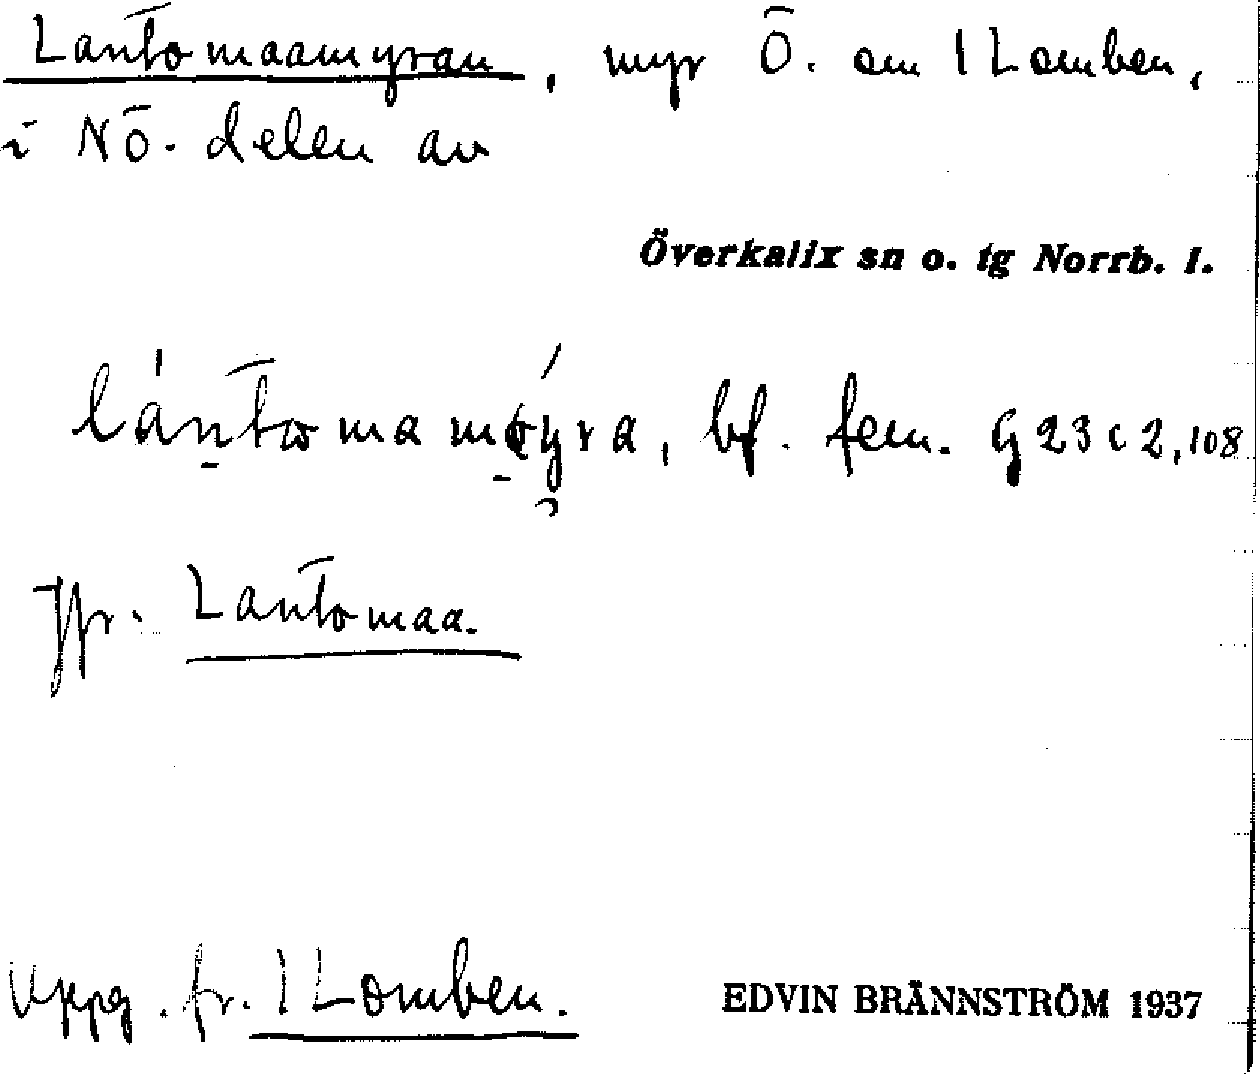 Lantomaamyran, myr Ö. om 1 Lomben,
i NÖ. delen av
Överkalix sn o. tg Norrb. l.
lántomamýra, bf. fem. G 23 c 2, 108
Jfr. Lantomaa.
Uppg. fr. 1 Lomben.
EDVIN BRÄNNSTRÖM 1937